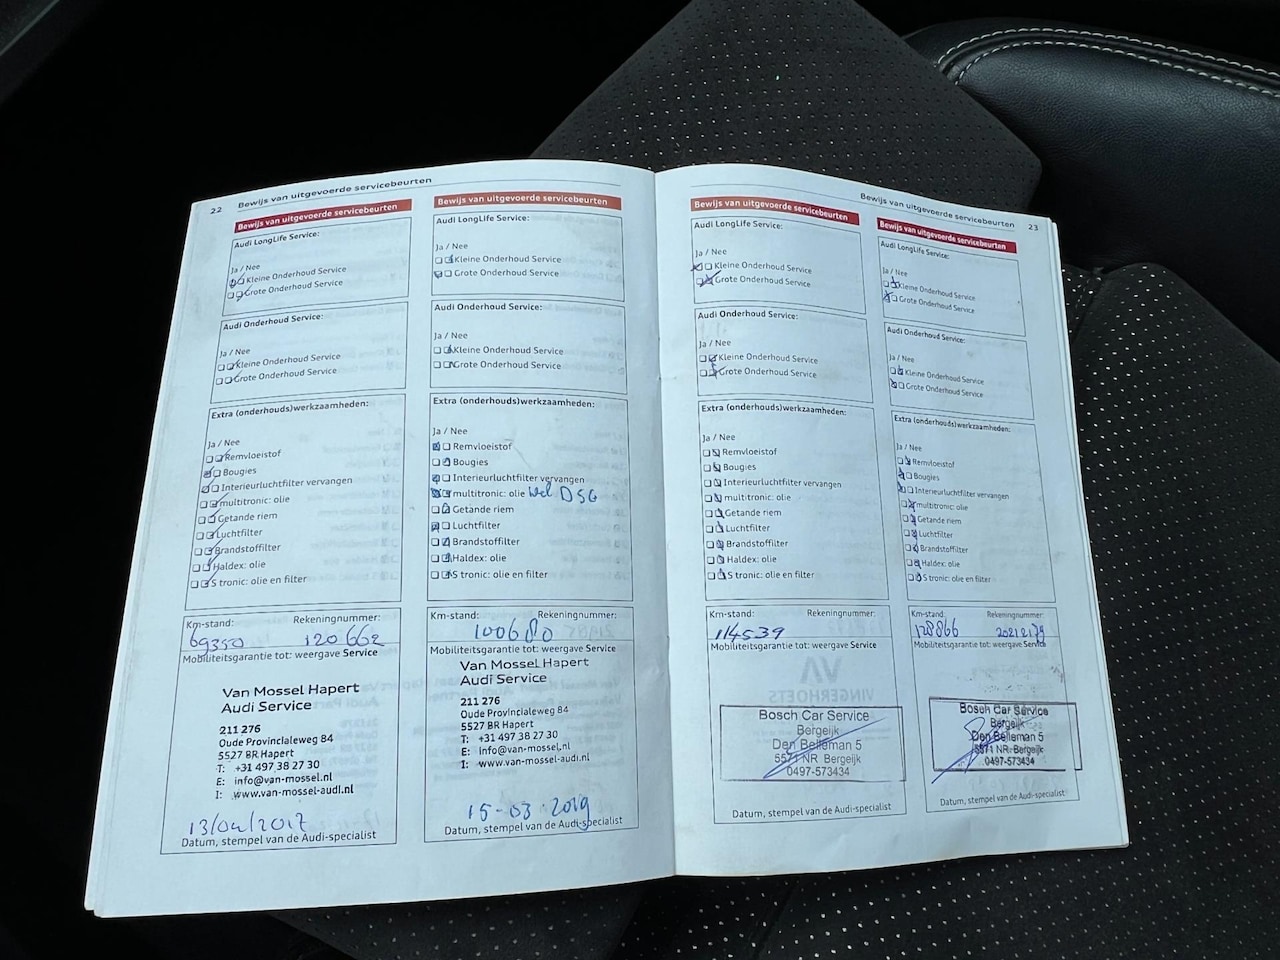 22 Bewijs van uitgevoerde servicebeurten
Bewijs van uitgevoerde servicebeurten
Audi LongLife Service:
Ja / Nee
Kleine Onderhoud Service
Grote Onderhoud Service
Audi Onderhoud Service:
Ja / Nee
Kleine Onderhoud Service
Grote Onderhoud Service
Extra (onderhouds)werkzaamheden:
Ja / Nee
Remvloeistof
Bougies
Interieurluchtfilter vervangen
multitronic: olie
Getande riem
Luchtfilter
Brandstoffilter
Haldex: olie
S tronic: olie en filter
Km-stand: Rekeningnummer:
69350 120662
Mobiliteitsgarantie tot: weergave Service
Van Mossel Hapert
Audi Service
211 276
Oude Provincialeweg 84
5527 BR Hapert
T: +31 497 38 27 30
E: info@van-mossel.nl
I: www.van-mossel-audi.nl
13/04/2017
Datum, stempel van de Audi-specialist
Bewijs van uitgevoerde servicebeurten
Audi LongLife Service:
Ja / Nee
Kleine Onderhoud Service
Grote Onderhoud Service
Audi Onderhoud Service:
Ja / Nee
Kleine Onderhoud Service
Grote Onderhoud Service
Extra (onderhouds)werkzaamheden:
Ja / Nee
Remvloeistof
Bougies
Interieurluchtfilter vervangen
multitronic: olie wel DSG
Getande riem
Luchtfilter
Brandstoffilter
Haldex: olie
S tronic: olie en filter
Km-stand: Rekeningnummer:
100680
Mobiliteitsgarantie tot: weergave Service
Van Mossel Hapert
Audi Service
211 276
Oude Provincialeweg 84
5527 BR Hapert
T: +31 497 38 27 30
E: info@van-mossel.nl
I: www.van-mossel-audi.nl
15-03-2019
Datum, stempel van de Audi-specialist
Bewijs van uitgevoerde servicebeurten 23
Bewijs van uitgevoerde servicebeurten
Audi LongLife Service:
Ja / Nee
Kleine Onderhoud Service
Grote Onderhoud Service
Audi Onderhoud Service:
Ja / Nee
Kleine Onderhoud Service
Grote Onderhoud Service
Extra (onderhouds)werkzaamheden:
Ja / Nee
Remvloeistof
Bougies
Interieurluchtfilter vervangen
multitronic: olie
Getande riem
Luchtfilter
Brandstoffilter
Haldex: olie
S tronic: olie en filter
Km-stand: Rekeningnummer:
114539
Mobiliteitsgarantie tot: weergave Service
VINGERHOETS
Bosch Car Service
Bergeijk
Den Belleman 5
5571 NR Bergeijk
0497-573434
Datum, stempel van de Audi-specialist
Bewijs van uitgevoerde servicebeurten
Audi LongLife Service:
Ja / Nee
Kleine Onderhoud Service
Grote Onderhoud Service
Audi Onderhoud Service:
Ja / Nee
Kleine Onderhoud Service
Grote Onderhoud Service
Extra (onderhouds)werkzaamheden:
Ja / Nee
Remvloeistof
Bougies
Interieurluchtfilter vervangen
multitronic: olie
Getande riem
Luchtfilter
Brandstoffilter
Haldex: olie
S tronic: olie en filter
Km-stand: Rekeningnummer:
128866
Mobiliteitsgarantie tot: weergave Service
Bosch Car Service
Bergeijk
Den Belleman 5
5571 NR Bergeijk
0497-573434
Datum, stempel van de Audi-specialist